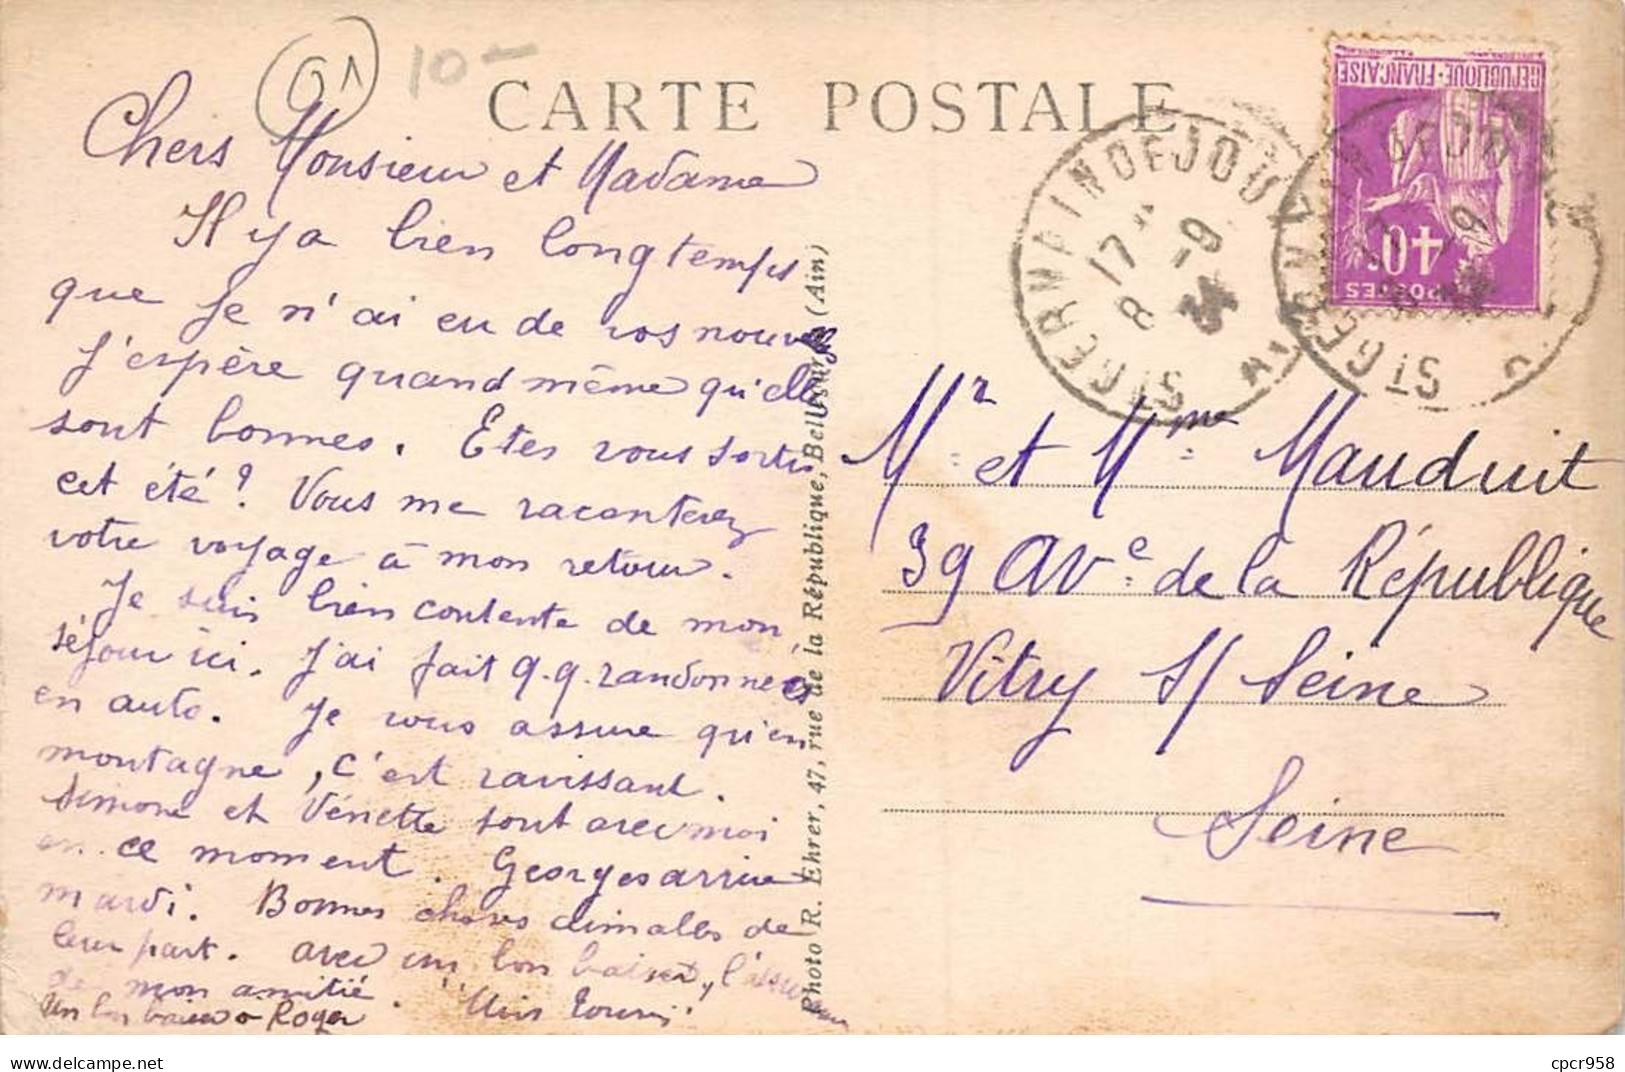 01
10 –
CARTE POSTALE
Chers Monsieur et Madame
Il y a bien longtemps
que je n'ai eu de vos nouvelles
J'espère quand même qu'elles
sont bonnes. Etes vous sortis
cet été ? Vous me raconterez
votre voyage à mon retour.
Je suis bien contente de mon
séjour ici. J'ai fait q.q. randonnées
en auto. Je vous assure qu'en
montagne, c'est ravissant.
Simone et Vénette sont avec moi
en ce moment. Georges arrive
mardi. Bonnes choses aimables de
leur part. Avec un bon baiser, l'assurance
de mon amitié.
Un bon baiser à Roger
Photo R. Ehrer, 47, rue de la République, Bellegarde (Ain)
REPUBLIQUE·FRANÇAISE
40c
POSTES
ST GERMAIN DE JOUX
17
8 -9
34
AIN
ST GERMAIN DE JOUX
Mr et Mme Mauduit
39 Ave de la République
Vitry s/ Seine
Seine
delcampe.net
cpcr958